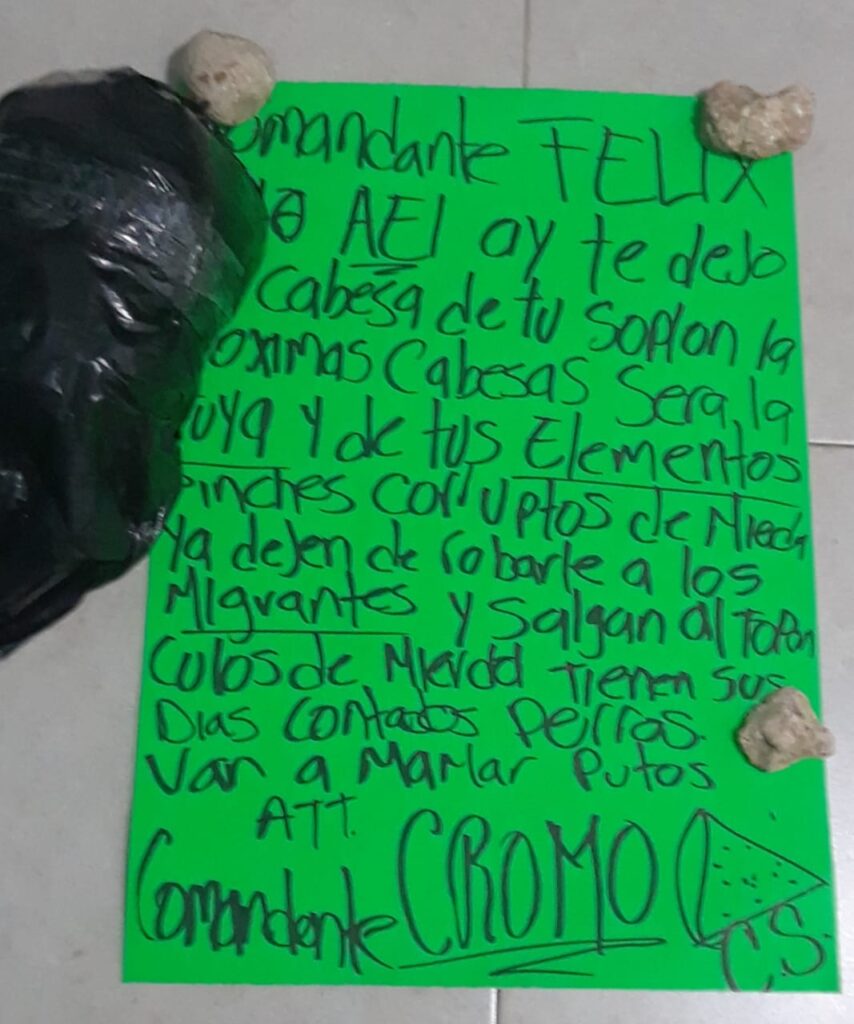 omandante FELIX
AEI ay te dejo
Cabesa de tu soplon la
oximas Cabesas Sera la
tuya y de tus Elementos
Pinches corruptos de Mieda
ya dejen de robarle a los
Migrantes y salgan al topon
Culos de Mierda tienen sus
Dias contados perros.
Van a Mamar putos
ATT.
Comandante CROMO
C.S.